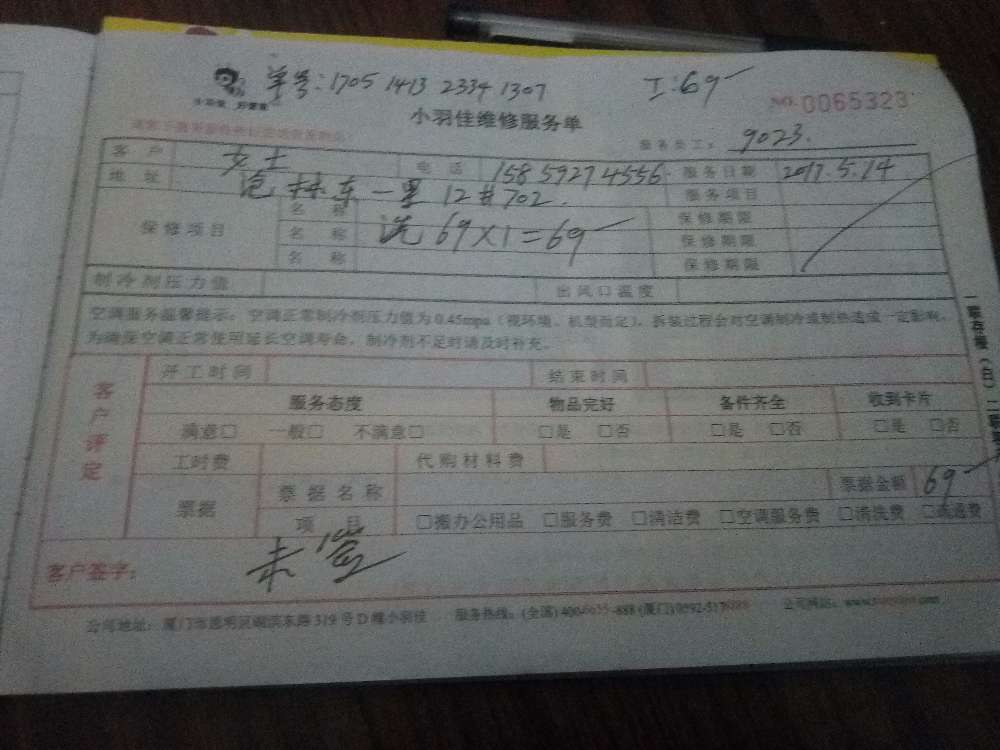 单号：1705 1413 2334 1307 工：69
小羽佳 好管家 NO. 0065323
小羽佳维修服务单
服务员工： 9023.
客户 女士 电话 158 5927 4556 服务日期 2017.5.14
地址 东一里12#702. 服务项目
保修项目 名称 保修期限
名称 洗 69×1=69 保修期限
名称 保修期限
制冷剂压力值 出风口温度
空调服务温馨提示：空调正常制冷剂压力值为0.45mpa（视环境、机型而定），拆装过程会对空调制冷或制热造成一定影响，
为确保空调正常使用延长空调寿命，制冷剂不足时请及时补充。
客户评定
开工时间 结束时间
服务态度 物品完好 备件齐全 收到卡片
满意□ 一般□ 不满意□ □是 □否 □是 □否 □是 □否
工时费 代购材料费
票据 票据名称 票据金额 69
项目 □搬办公用品 □服务费 □清洁费 □空调服务费 □清洗费 □疏通费
客户签字： 未签
公司地址：厦门市思明区湖滨东路319号D幢小羽佳 服务热线：(全国) 400-6655-888 (厦门) 0592-517 公司网站：www. .com
一联存根（白）二联